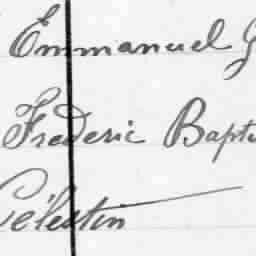 Emmanuel G
Frederic Bapti
Célestin